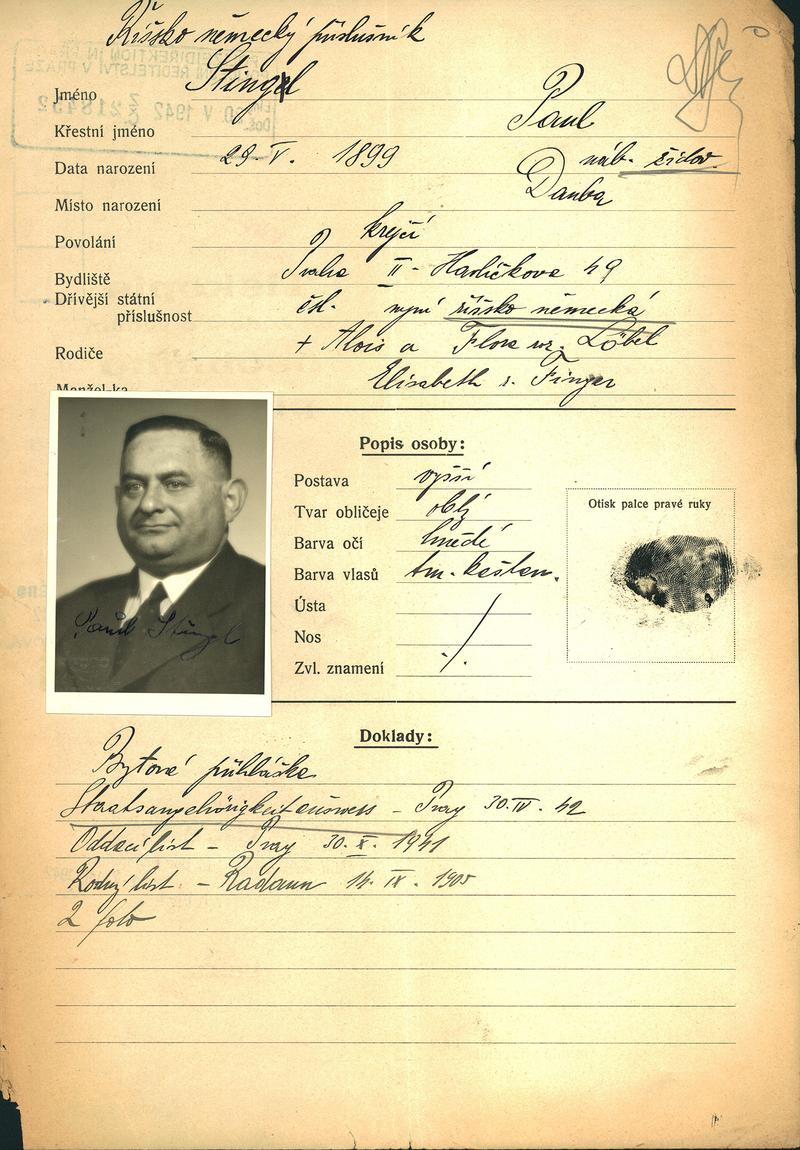 Říšsko německý příslušník
Jméno Stingl
Křestní jméno Paul
Data narození 29. V. 1899 náb. židov.
Místo narození Dauba
Povolání krejčí
Bydliště Praha II - Havlíčkova 49
Dřívější státní
příslušnost čsl. nyní říšsko německá
Rodiče + Alois a Flora roz. Löbel
Manžel-ka Elisabeth r. Finger
Popis osoby:
Postava vyšší
Tvar obličeje oblý
Barva očí hnědé
Barva vlasů tm. kaštan.
Ústa
Nos
Zvl. znamení
Otisk palce pravé ruky
Paul Stingl
Doklady:
Bytová přihláška
Staatsangehörigkeitsausweis - Prag 30. IV. 42
Oddací list - Prag 30. X. 1941
Rodný list - Radaun 14. IX. 1905
2 foto